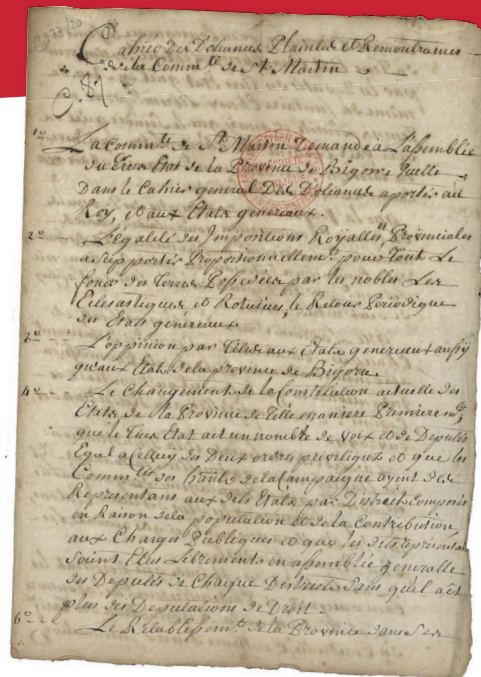 C 277/20
Cahier Des Doleances Plaintes et Remontrances
de la Comm.té de St Martin
C. 87
1o La Comm.té de St Martin Demande à L'assemblée
du Tiers Etat de la Province de Bigorre quelle
Dans le Cahier general Des Doleances aportés au
Roy, et aux Etats generaux.
2o L'egalité des Impositions Royalles, Provinciales
a Supportés Proportionnellem.t pour Tout Le
fonds des Terres Possedées par les nobles Les
Eclesastiques et Roturiers, le Retour Periodique
des Etats généraux.
3o L'oppinion par Tetes aux Etats generaux aussy
qu'aux Etats de la province de Bigorre.
4o Le Changement de la Constitution actuelle des
Etats de la Province de Telle maniere Premierem.t
que le Tiers Etat ait un nombre de voix et de Deputés
Egal a Celluy des Deux ordres privilegiez et que les
Comm.tés des Cantons de la Campaigne ayent des
Representans aux dits Etats par Districts Composés
en Raison de la population et de la Contribution
aux Charges Publiques et que les dits representans
Soint Elus Librements en assemblée generalle
des Deputés de Chaque Districts Sans qu'il ait
plus des Deputations de Droit.
5o Le Retablissem.t de la Province dans Ses